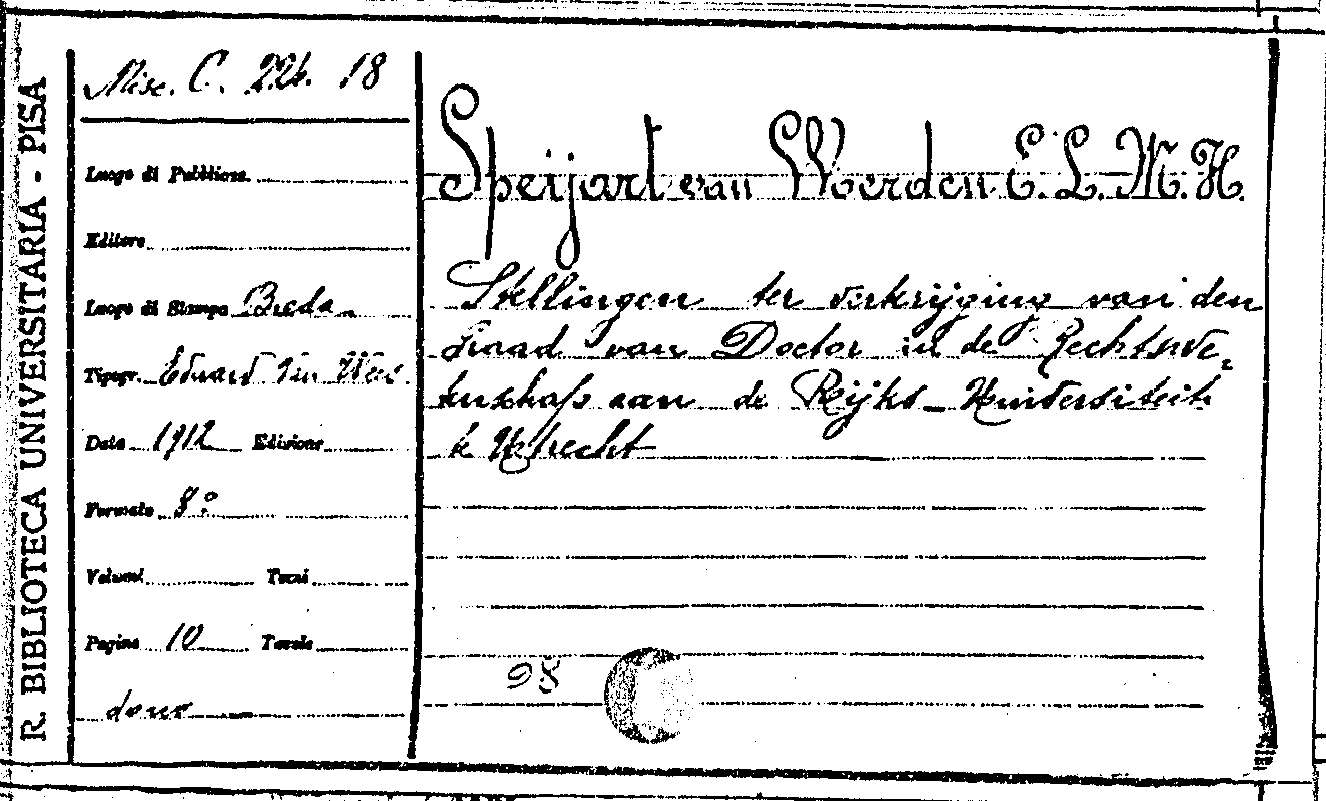 R. BIBLIOTECA UNIVERSITARIA - PISA
Misc. C. 224. 18
Luogo di Pubblicaz.
Editore
Luogo di Stampa Breda
Tipogr. Eduard van Wees
Data 1912 Edizione
Formato 8º
Volumi Tomi
Pagine 10 Tavole
dono
Speijart van Woerden E. L. M. H.
Stellingen ter verkrijging van den
Graad van Doctor in de Rechtswe=
tenschap aan de Rijks-Universiteit
te Utrecht
98